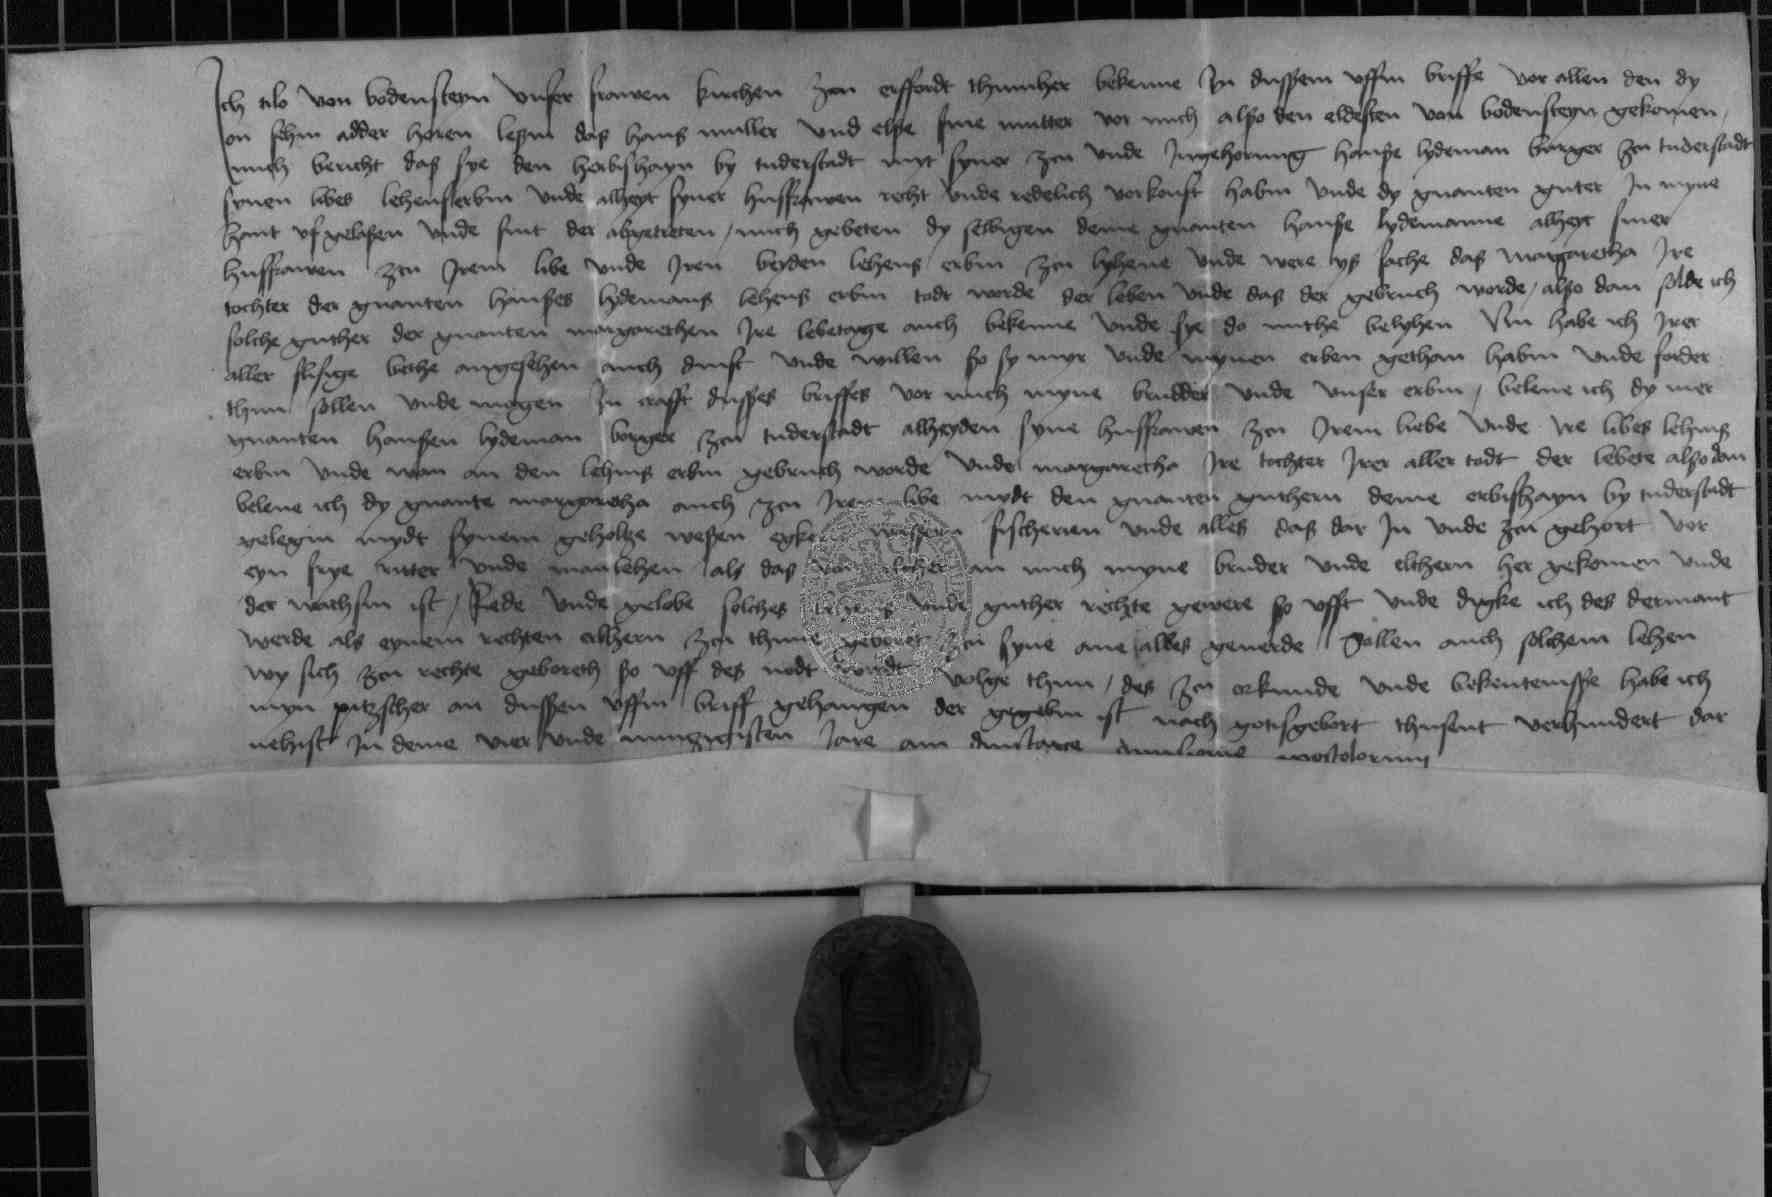 Ich tilo von bodensteyn unser frauwen kirchen zcu erffordt thumher bekenne In dussem uffin briffe vor allen den dy
on sehin adder horen lesin das hans muller und else sine mutter vor mich also den eldesten von bodensteyn gekomen /
mich bericht das sye den herbishayn by tuderstadt myt syner zcu unde Ingehorung hanse lydeman burger zcu tuderstadt
synen libes lehenserbin unde alheyt syner husfrawen recht unde redelich vorkouft habin unde dy gnanten guter In myne
hant ufgelasen unde sint der abgetreten / mich gebeten dy selbigen deme gnanten hanse lydemanne alheyt siner
husfrawen zcu Irem libe unde Iren beyden lehens erbin zcu lyhene unde were ys sache das margaretha Ire
tochter der gnanten hanses lydemans lehens erbin todt worde der leben unde das der gebruch worde / also dan solde ich
solche guther der gnanten margarethen Ire lebetage auch bekenne unde sye do mithe belyhen Nu habe ich Irer
aller flisige bethe angesehen auch dinst unde willen so sy myr unde mynen erben gethan habin unde forder
thun sollen unde mogen In crafft dusses briffes vor mich myne brudder unde unser erbin / belene ich dy mer
gnanten hansen lydeman borger zcu tuderstadt alheyden syne husfrawen zcu Irem liebe unde Ire libes lehins
erbin unde wan an den lehins erbin gebruch worde unde margaretha Ire tochter Irer aller todt der lebete also dan
belene ich dy gnante margaretha auch zcu Irem libe mydt den gnanten guthern deme erbishayn by tuderstadt
gelegin mydt synem geholtze wesen egker wassern fischerien unde alles das dar In unde zcu gehort vor
eyn frye ritter unde manlehen als das an mich myne bruder unde elthern her gekomen unde
der wachsin ist / Rede unde gelobe solches lehens unde guther rechte gewere so ufft unde digke ich des vermant
werde als eynem rechten erbhern zcu thune geboret zcu syne ane alles geuerde Sollen auch solchem lehen
wy sich zcu rechte geboreth so uff des nodt wordt volge thun / des zcu orkunde unde bekentenisse habe ich
myn pitzscher an dussen uffin briff gehangen der gegebin ist nach gotisgebort thusent verhundert dar
nehist In deme vier unde nunzcigisten Jare am dinstage apostolorum